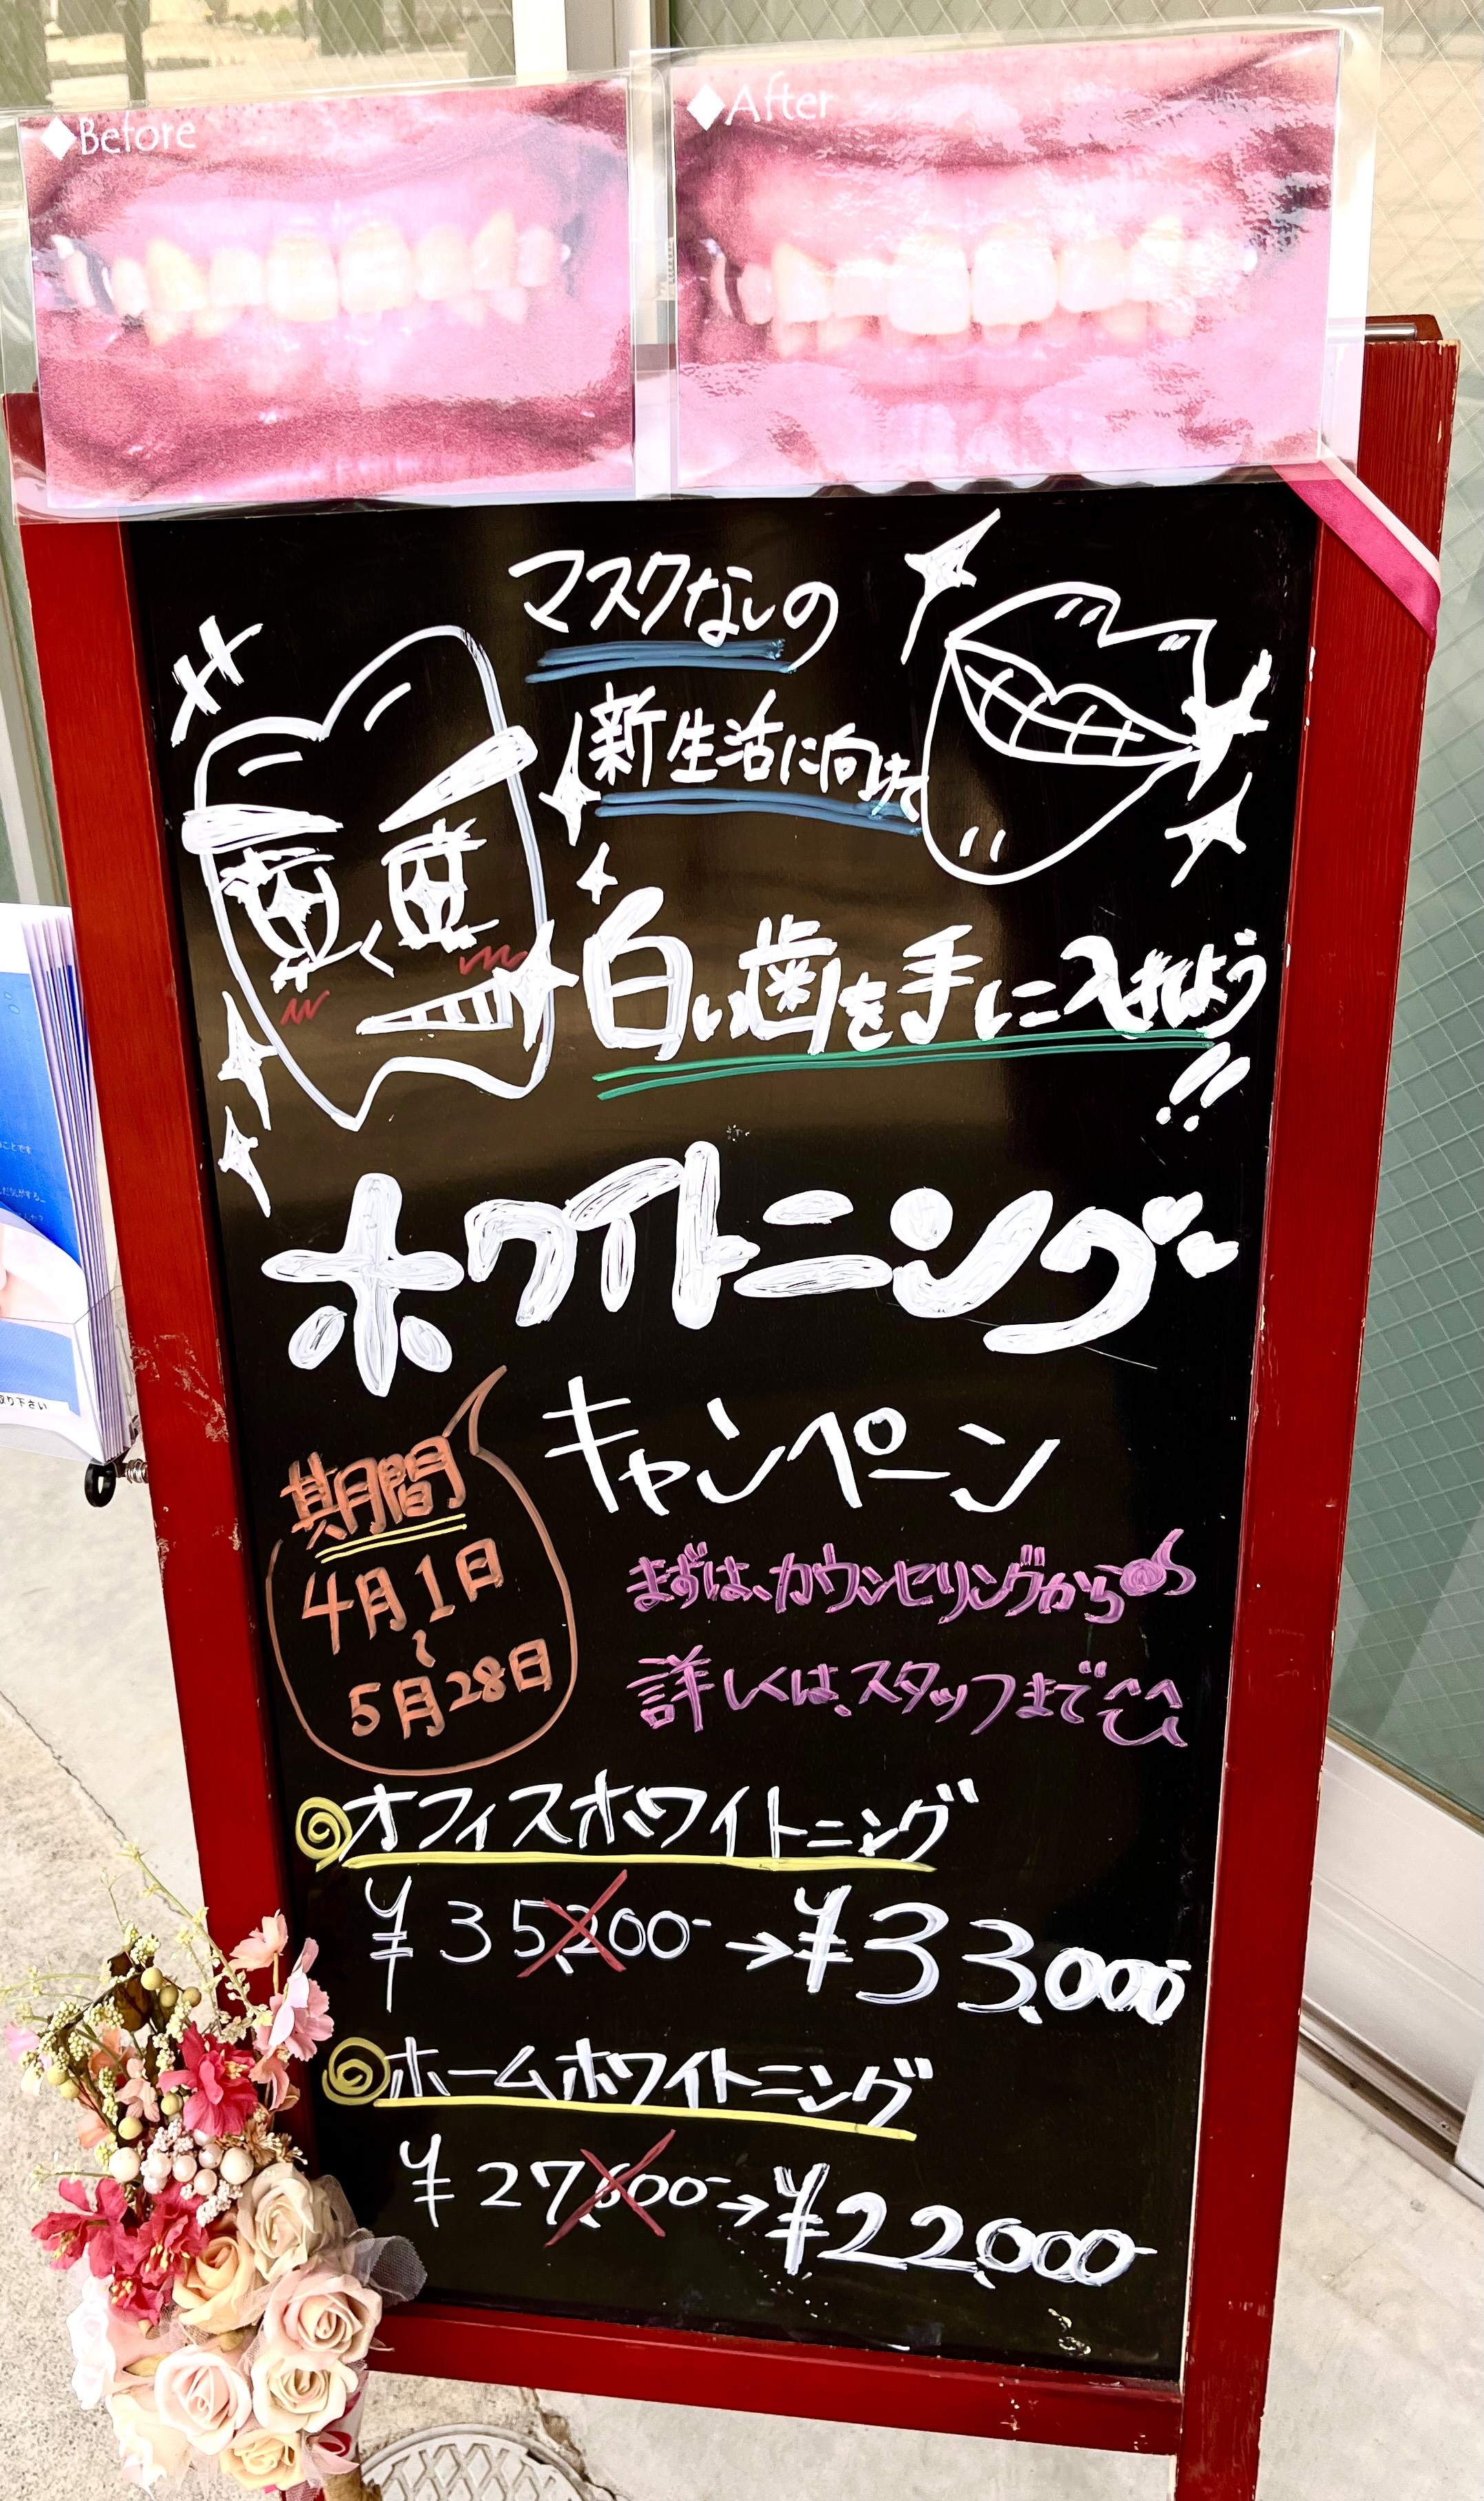 ◆Before
◆After
マスクなしの
新生活に向けて
白い歯を手に入れよう!!
ホワイトニング
キャンペーン
期間
4月1日
〜
5月28日
まずは、カウンセリングから
詳しくは、スタッフまで
オフィスホワイトニング
¥35,200- → ¥33,000-
ホームホワイトニング
¥27,600- → ¥22,000-